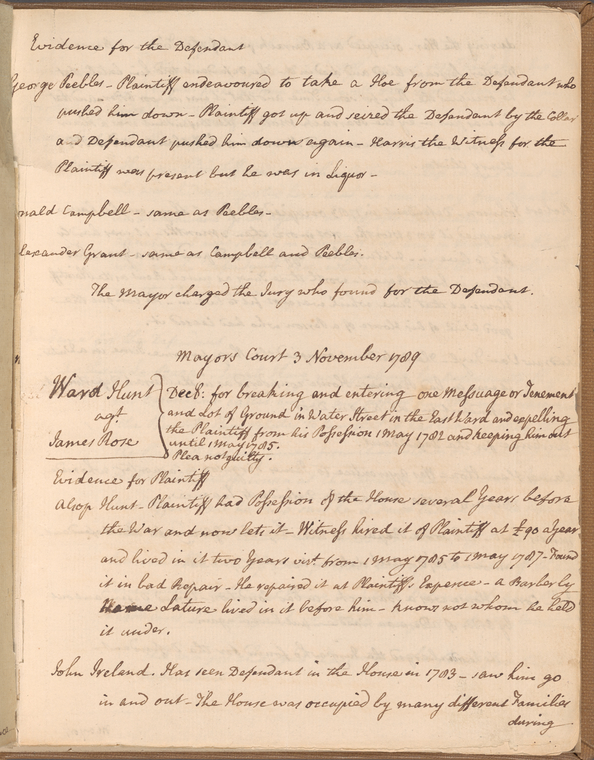 Evidence for the Defendant
George Peebles - Plaintiff endeavoured to take a Hoe from the Defendant who
pushed him down - Plaintiff got up and seized the Defendant by the Collar
and Defendant pushed him down again - Harris the Witness for the
Plaintiff was present but he was in Liquor -
nald Campbell - same as Peebles -
lexander Grant - same as Campbell and Peebles.
The Mayor charged the Jury who found for the Defendant.
Mayors Court 3 November 1789
Ward Hunt
agt.
James Rose
Decl: for breaking and entering one Messuage or Tenement
and Lot of Ground in Water Street in the East Ward and expelling
the Plaintiff from his Possession 1 May 1782 and keeping him out
until 1 May 1785.
Plea not guilty.
Evidence for Plaintiff
Alsop Hunt - Plaintiff had Possession of the House several Years before
the War and now lets it - Witness hired it of Plaintiff at £90 a Year
and lived in it two Years vizt. from 1 May 1785 to 1 May 1787 - Found
it in bad Repair - He repaired it at Plaintiffs Expence - a Barber by
Name Lature lived in it before him - knows not whom he held
it under.
John Ireland. Has seen Defendant in the House in 1783 - saw him go
in and out - The House was occupied by many different Families
during